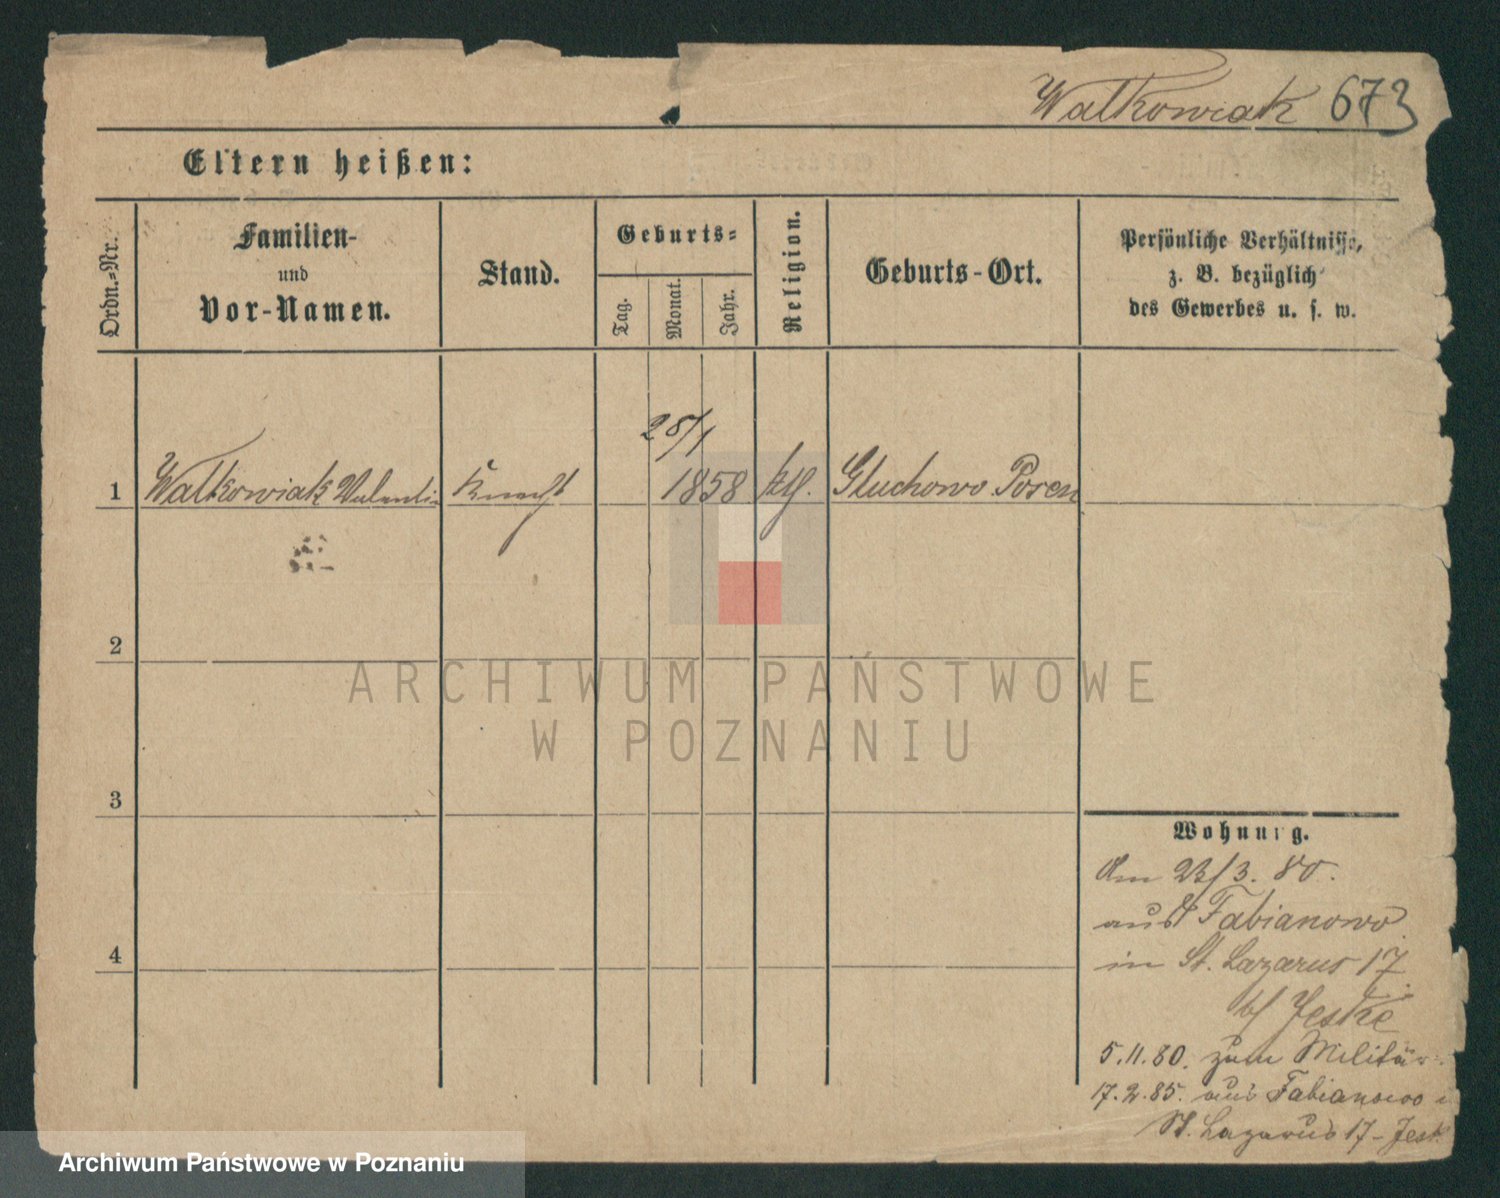 Walkowiak 673
Eltern heißen:
Ordn.-Nr.
Familien-
und
Vor-Namen.
Stand.
Geburts-
Tag.
Monat.
Jahr.
Religion.
Geburts-Ort.
Persönliche Verhältnisse,
z. B. bezüglich
des Gewerbes u. s. w.
28/1
1 Walkowiak Valentin Knecht 1858 ktl. Gluchowo Posen
2
3
4
ARCHIWUM PAŃSTWOWE
W POZNANIU
Wohnung.
Am 23/3. 80.
aus Fabianowo
in St. Lazarus 17
b/ Jeske
5.11.80. zum Militär
17.2.85. aus Fabianowo
St. Lazarus 17 - Jesk
Archiwum Państwowe w Poznaniu